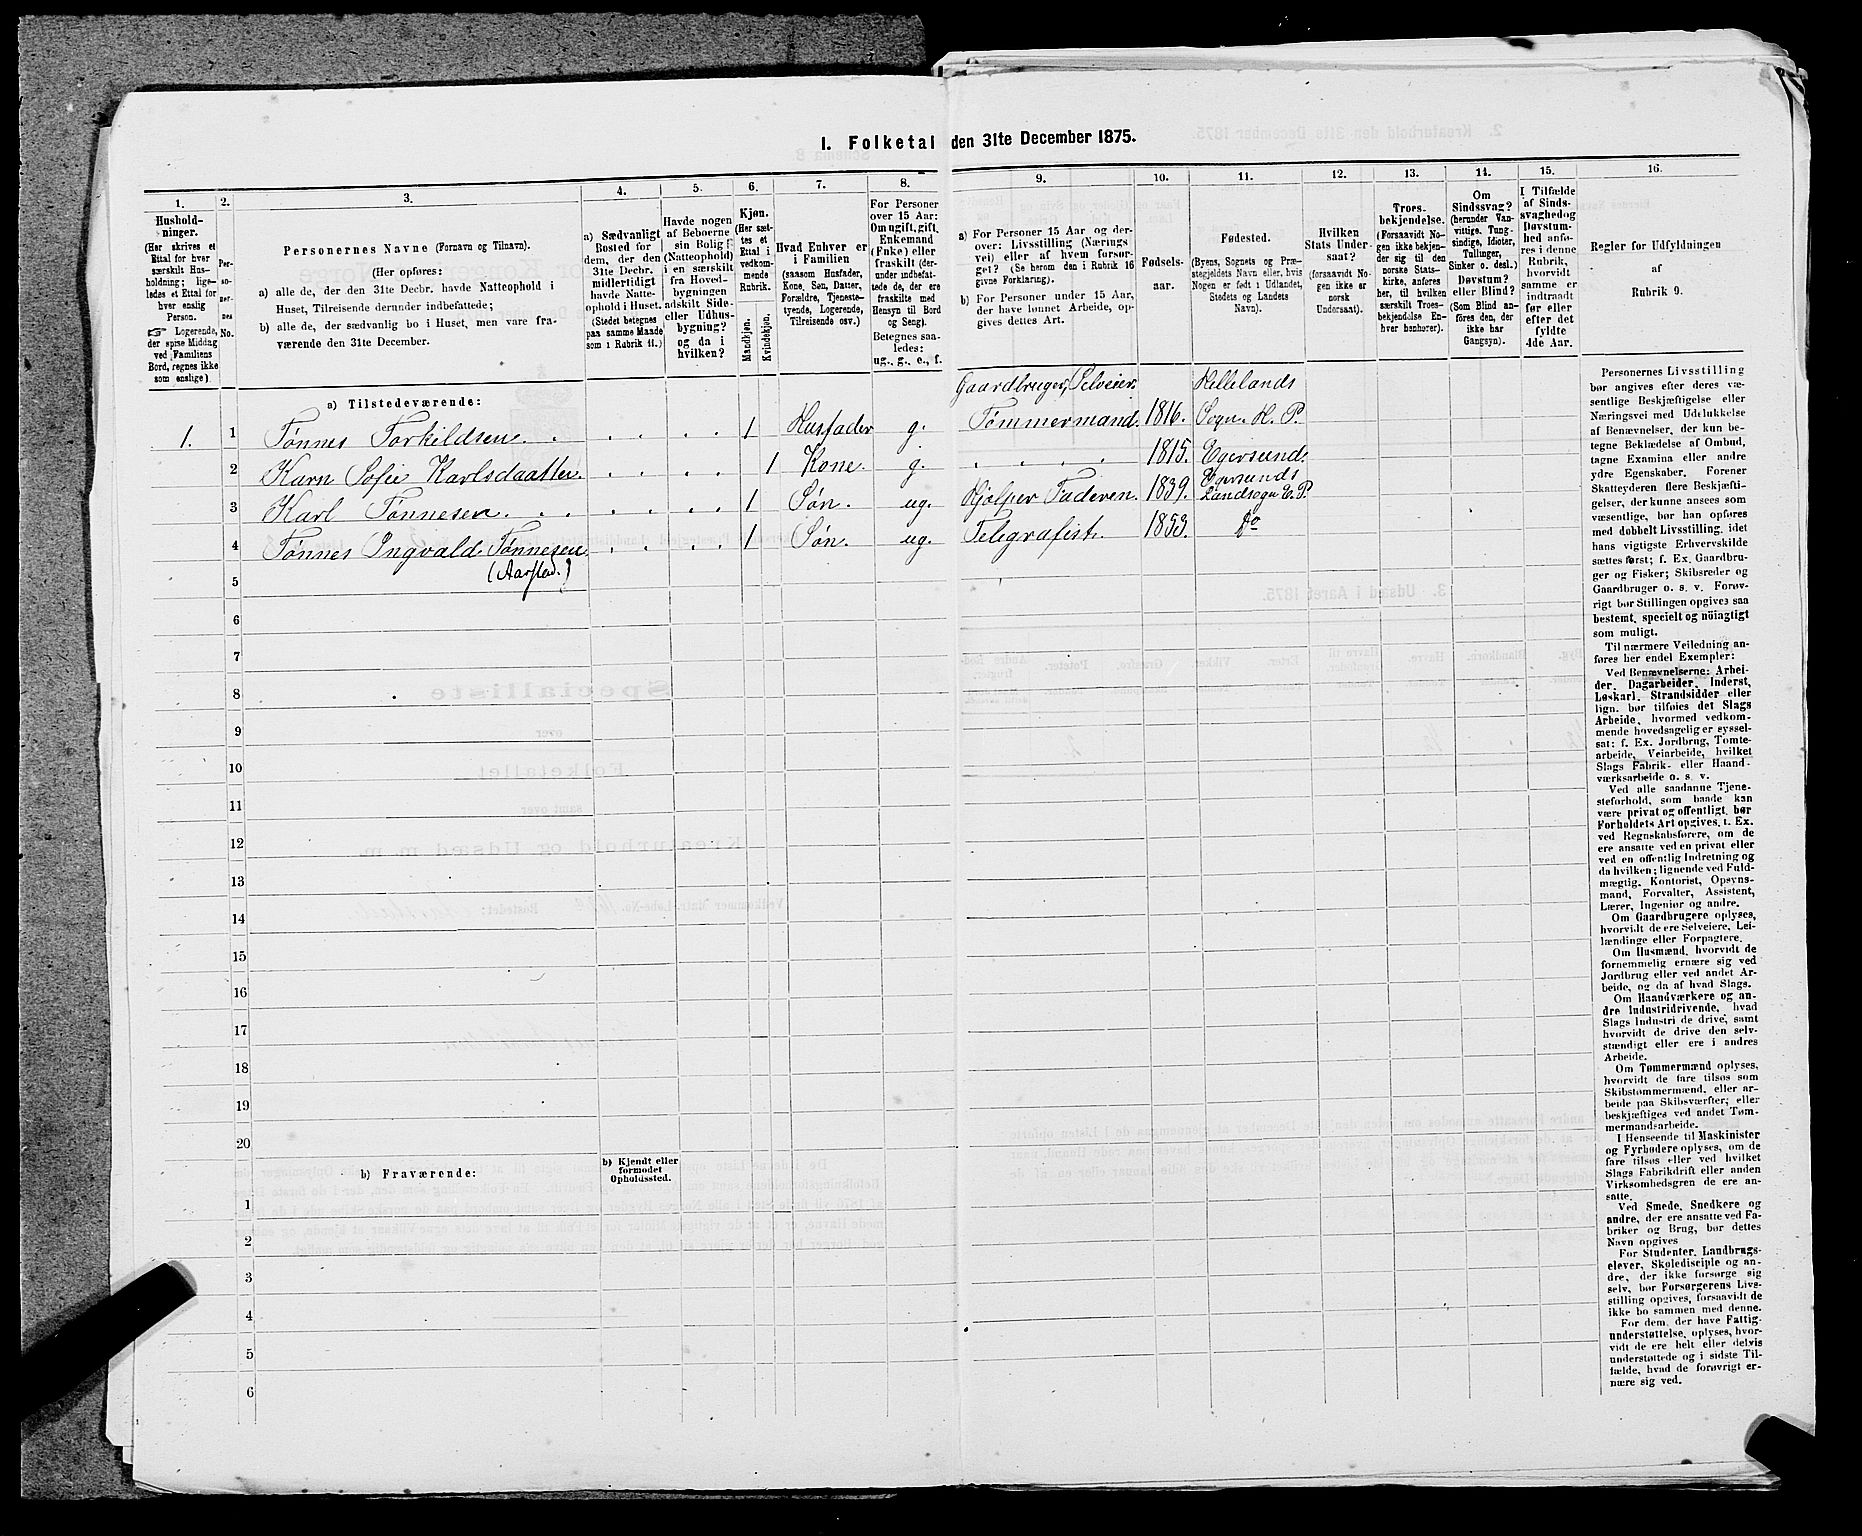 1. Folketal den 31te December 1875.
1. 2. 3. 4. 5. 6. 7. 8. 9. 10. 11. 12. 13. 14. 15. 16.
Hushold-
ninger.
(Her skrives et
Ettal for hver
særskilt Hus-
holdning; lige-
ledes et Ettal for
hver enslig
Person.
☞ Logerende,
der spise Middag
ved Familiens
Bord, regnes ikke
som enslige).
Per-
so-
ner-
nes
No.
Personernes Navne (Fornavn og Tilnavn).
(Her opføres:
a) alle de, der den 31te Decbr. havde Natteophold i
Huset, Tilreisende derunder indbefattede;
b) alle de, der sædvanlig bo i Huset, men vare fra-
værende den 31te December.
a) Sædvanligt
Bosted for
dem, der den
31te Decbr.
midlertidigt
havde Natte-
ophold i Huset.
(Stedet betegnes
paa samme Maade
som i Rubrik 11.)
Havde nogen
af Beboerne
sin Bolig
(Natteophold)
i en særskilt
fra Hoved-
bygningen
adskilt Side-
eller Udhus-
bygning?
og da i
hvilken?
Kjøn.
(Her sæt-
tes et
Ettal i
vedkom-
mende
Rubrik.
Mandkjøn.
Kvindekjøn.
Hvad Enhver er
i Familien
(saasom Husfader,
Kone, Søn, Datter,
Forældre, Tjeneste-
tyende, Logerende,
Tilreisende osv.)
For Personer
over 15 Aar:
Om ugift, gift,
Enkemand
(Enke) eller
fraskilt (der-
under indbefat-
tede de, der ere
fraskilte med
Hensyn til Bord
og Seng).
Betegnes saa-
ledes:
ug., g., e., f.
a) For Personer 15 Aar og der-
over: Livsstilling (Nærings
vei) eller af hvem forsør-
get? (Se herom den i Rubrik 16
givne Forklaring).
b) For Personer under 15 Aar,
der have lønnet Arbeide, op-
gives dettes Art.
Fødsels-
aar.
Fødested.
(Byens, Sognets og Præ-
stegjeldets Navn eller, hvis
Nogen er født i Udlandet,
Stedets og Landets
Navn).
Hvilken
Stats Under-
saat?
(forsaavidt No-
gen ikke er
norsk
Undersaat).
Troes-
bekjendelse.
(Forsaavidt No-
gen ikke bekjen-
der sig til den
norske Stats-
kirke, anføres
her, til hvilken
særskilt Troes-
bekjendelse En-
hver henhører).
Om
Sindssvag?
(herunder Van-
vittige, Tung-
sindige, Idioter,
Tullinger,
Sinker o. desl.)
Døvstum?
eller Blind?
(Som Blind an-
føres den, der
ikke har
Gangsyn).
I Tilfælde
af Sinds-
svaghed og
Døvstum-
hed anfø-
res i denne
Rubrik,
hvorvidt
samme er
indtraadt
før eller
efter det
fyldte
4de Aar.
Regler for Udfyldningen
af
Rubrik 9.
a) Tilstedeværende:
Gaardbruger, Selveier. Hellelands
1. 1 Tønnes Torkildsen 1 Husfader g. Tømmermand. 1816. Sogn. H. P.
2 Karn Sofie Karlsdaatter 1 Kone. g. 1815. Egersund.
3 Karl Tønnesen 1 Søn ug. Hjelper Faderen. 1839. Egersunds Landsogn E. P.
4 Tønnes Ingvald Tønnesen 1 Søn. ug. Telegrafist. 1853. Do
(Aarstad.)
5
6
7
8
9
10
11
12
13
14
15
16
17
18
19
20
b) Fraværende:
b) Kjendt eller
formodet
Opholdssted.
1
2
3
4
5
6
Personernes Livsstilling
bør angives efter deres væ-
sentlige Beskjæftigelse eller
Næringsvei med Udelukkelse
af Benævnelser, der kun be-
tegne Beklædelse af Ombud,
tagne Examina eller andre
ydre Egenskaber. Forener
Skatteyderen flere Beskjæfti-
gelser, der kunne ansees som
væsentlige, bør han opføres
med dobbelt Livsstilling, idet
hans vigtigste Erhvervskilde
sættes først; f. Ex. Gaardbru-
ger og Fisker; Skibsreder og
Gaardbruger o. s. v. Forøv-
rigt bør Stillingen opgives saa
bestemt, specielt og nöiagtigt
som muligt.
Til nærmere Veiledning an-
føres her endel Exempler:
Ved Benævnelserne: Arbei-
der, Dagarbeider, Inderst,
Løskarl, Strandsidder eller
lign. bør tilføies det Slags
Arbeide, hvormed vedkom-
mende hovedsagelig er syssel-
sat; f. Ex. Jordbrug, Tomte-
arbeide, Veiarbeide, hvilket
Slags Fabrik- eller Haand-
værksarbeide o. s. v.
Ved alle saadanne Tjene-
steforhold, som baade kan
være privat og offentligt, bør
Forholdets Art opgives, t. Ex.
ved Regnskabsførere, om de
ere ansatte ved en privat eller
ved en offentlig Indretning og
da hvilken; lignende ved Fuld-
mægtig, Kontorist, Opsyns-
mand, Forvalter, Assistent,
Lærer, Ingeniør og andre.
Om Gaardbrugere oplyses,
hvorvidt de ere Selveiere, Lei-
lændinge eller Forpagtere.
Om Husmænd, hvorvidt de
fornemmelig ernære sig ved
Jordbrug eller ved andet Ar-
beide, og da af hvad Slags.
Om Haandværkere og an-
dre Industridrivende, hvad
Slags Industri de drive, samt
hvorvidt de drive den selv-
stændigt eller ere i andres
Arbeide.
Om Tømmermænd oplyses,
hvorvidt de fare tilsøs som
Skibstømmermænd, eller ar-
beide paa Skibsværfter; eller
beskjæftiges ved andet Tøm-
mermandsarbeide.
I Henseende til Maskinister
og Fyrbødere oplyses, om de
fare tilsøs eller ved hvilket
Slags Fabrikdrift eller anden
Virksomhedsgren de ere an-
satte.
Ved Smede, Snedkere og
andre, der ere ansatte ved Fa-
briker og Brug, bør dettes
Navn opgives
For Studenter, Landbrugs-
elever, Skoledisciple og an-
dre, der ikke forsørge sig
selv, bør Forsørgerens Livs-
stilling opgives, forsaavidt de
ikke bo sammen med denne.
For dem, der have Fattig-
understøttelse, oplyses, hvor-
vidt de ere helt eller delvis
understøttede og i sidste Til-
fælde, hvad de forøvrigt er-
nære sig ved.